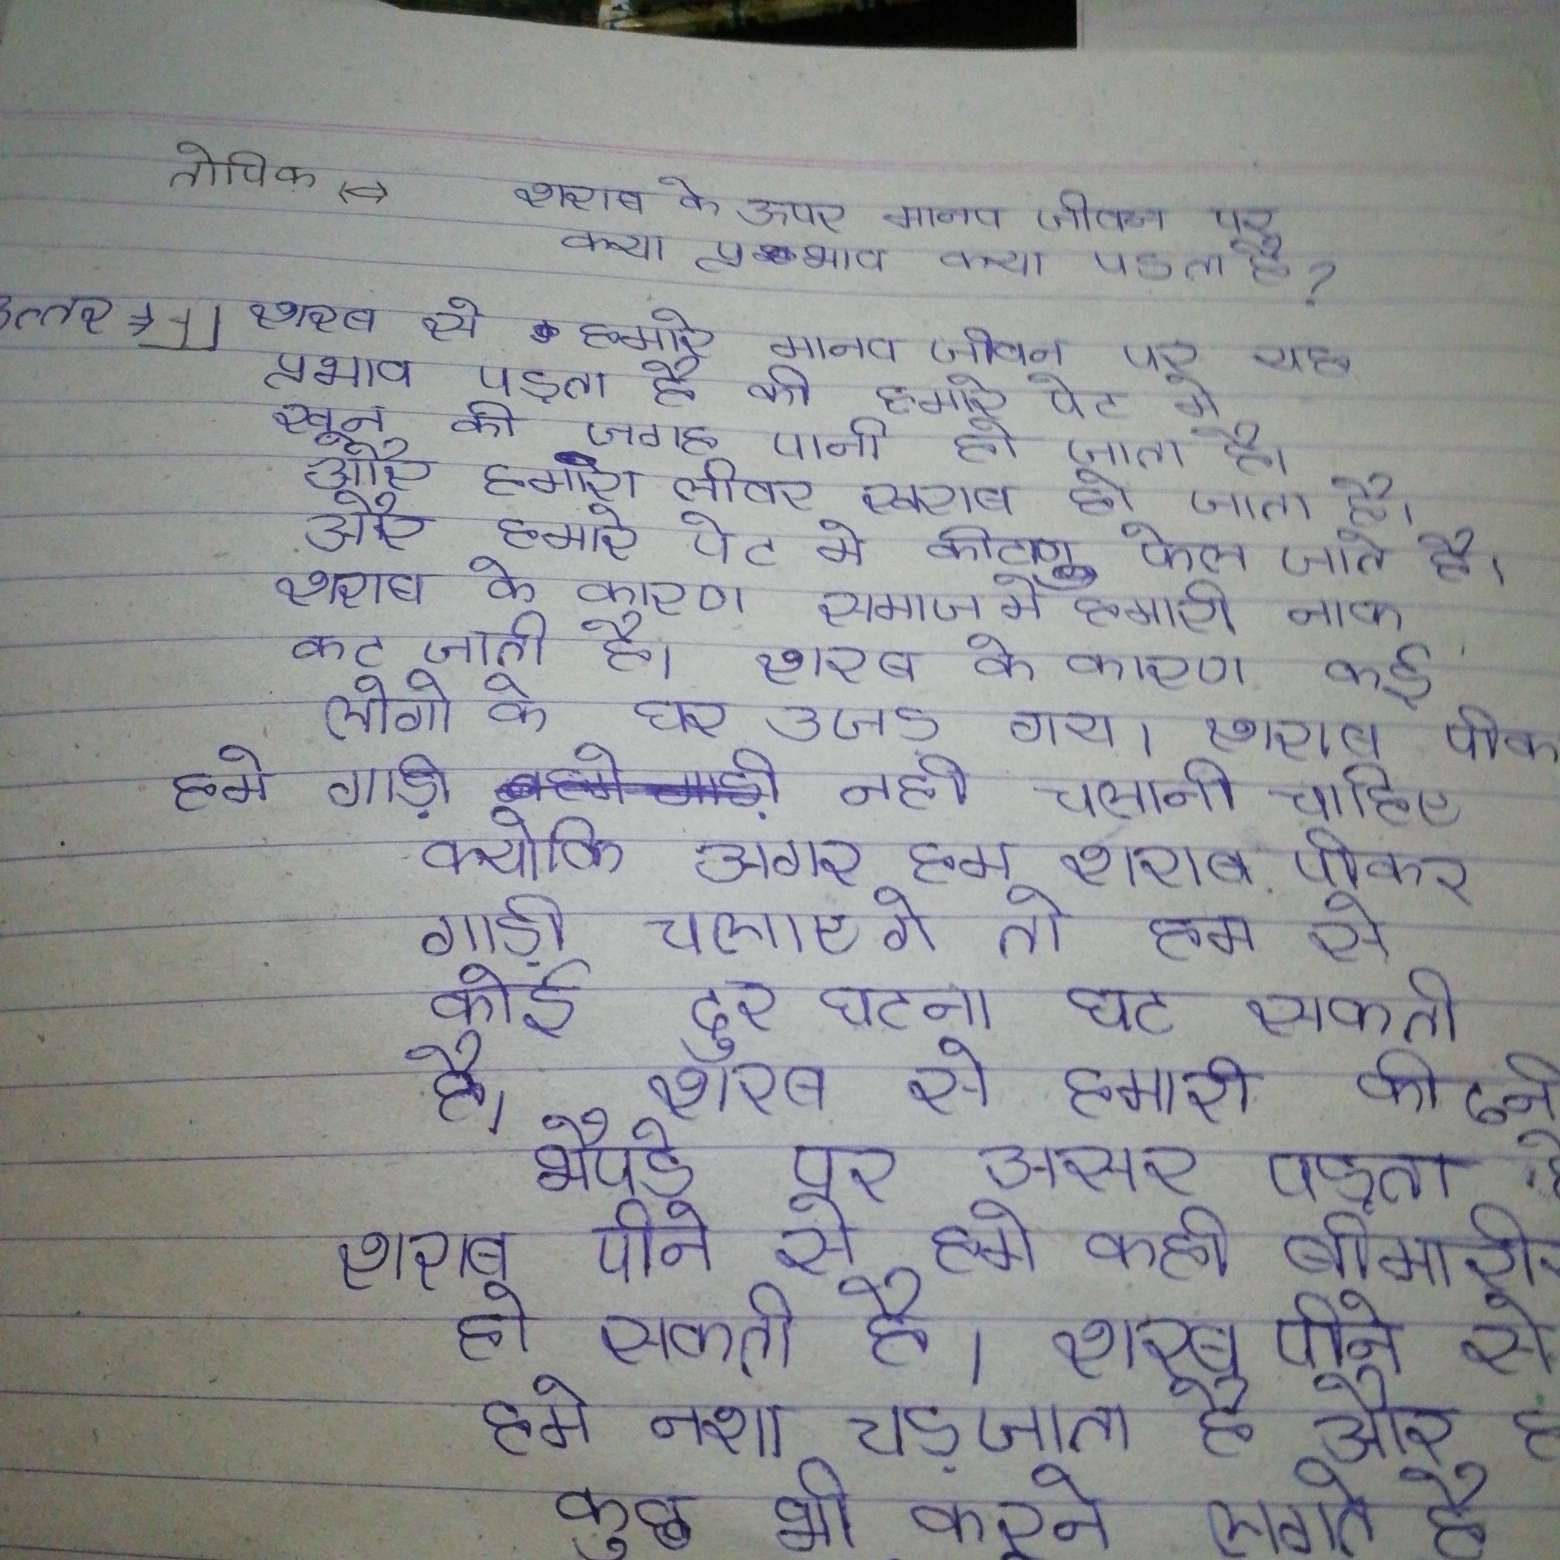 तोपिक ↔ शराब के ऊपर मानव जीवन पर
क्या प्रभाव क्या पडता है?
उत्तर ⇒ 1] शरब से हमारे मानव जीवन पर यह
प्रभाव पड़ता है की हमारे पेट मे
खून की जगह पानी हो जाता है।
और हमारा लीवर खराब हो जाता है।
और हमारे पेट मे कीटाणु फेल जाते है।
शराब के कारण समाज में हमारी नाक
कट जाती है। शरब के कारण कई
लोगो के घर उजड गय। शराब पीक
हमे गाड़ी नही चलानी चाहिए
क्योकि अगर हम शराब पीकर
गाड़ी चलाएगे तो हम से
कोई दुर घटना घट सकती
है। शरब से हमारी कीढने
भैपडे पर असर पड़ता है
शराब पीने से हमे कही बीमारी
हो सकती है। शरब पीने से
हमे नशा चड़जाता है और ह
कुछ भी करने लगते है